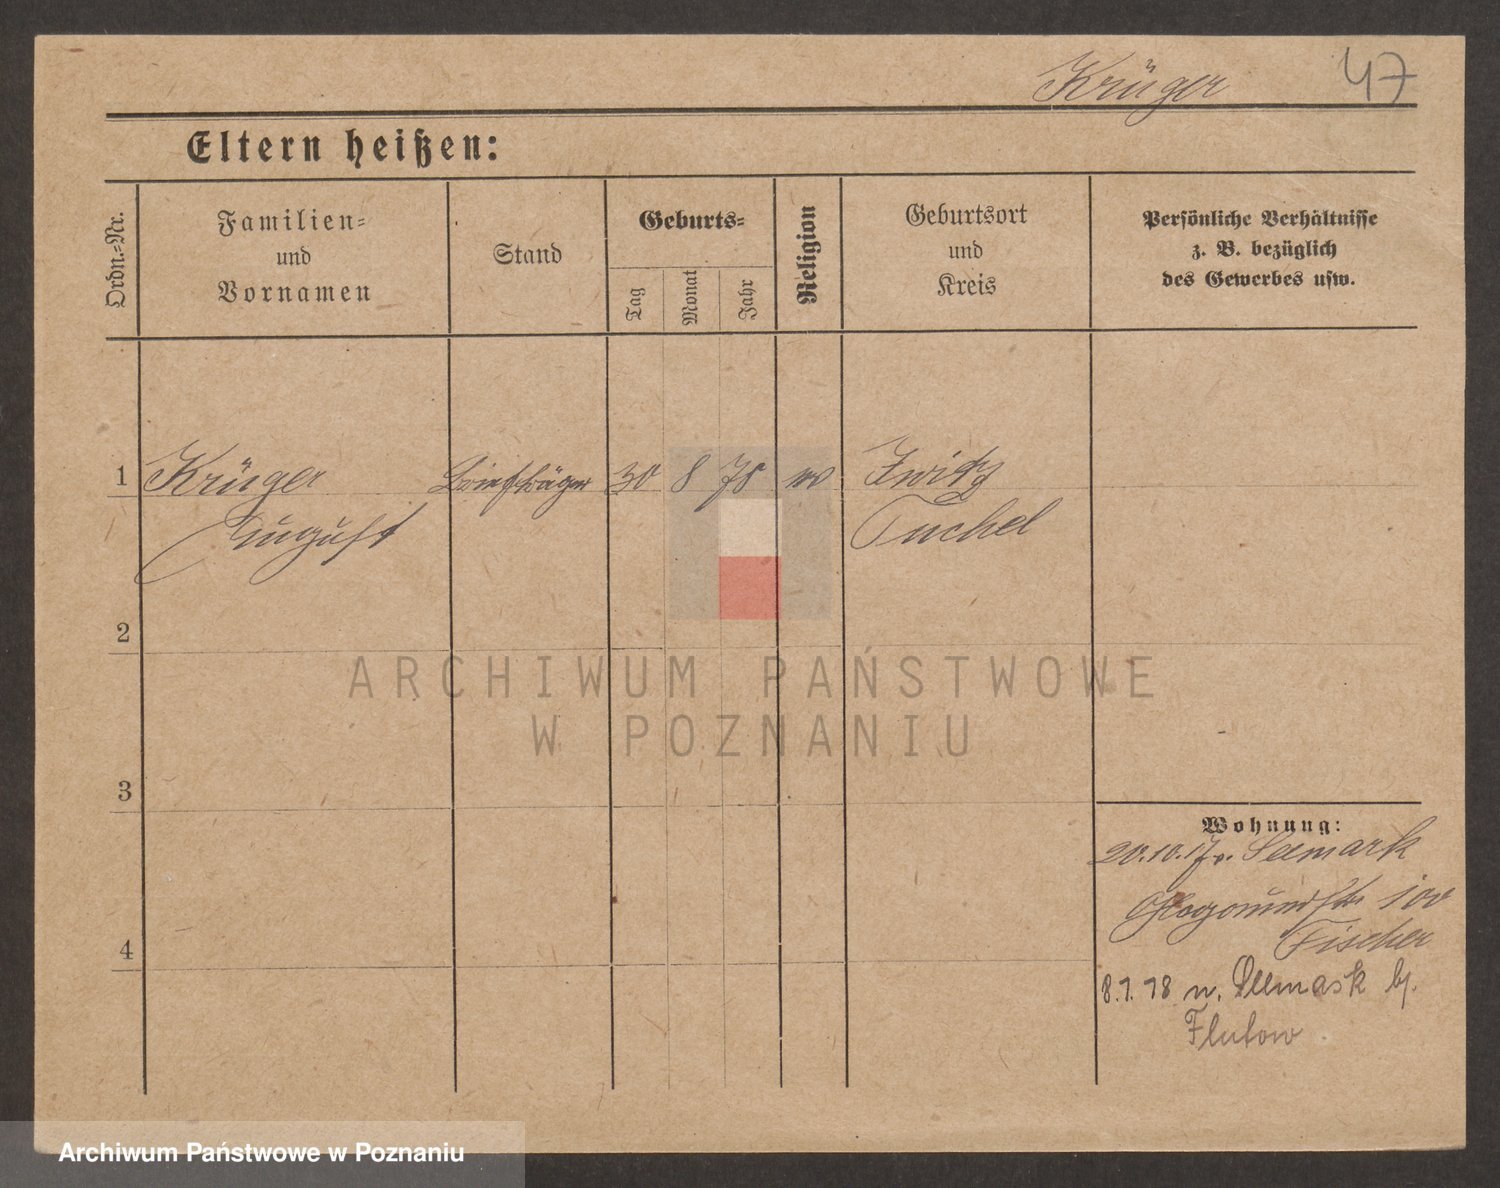 Krüger 47
Eltern heißen:
Ordn.-Nr.
Familien-
und
Vornamen
Stand
Geburts-
Tag
Monat
Jahr
Religion
Geburtsort
und
Kreis
Persönliche Verhältnisse
z. B. bezüglich
des Gewerbes usw.
1 Krüger Briefträger 30 8 78 Zwitz
August Tuchel
2
3
4
ARCHIWUM PAŃSTWOWE
W POZNANIU
Wohnung:
20.10.17 v. Seemark
100
Fischer
8.1.18 n. b/.
Flatow
Archiwum Państwowe w Poznaniu